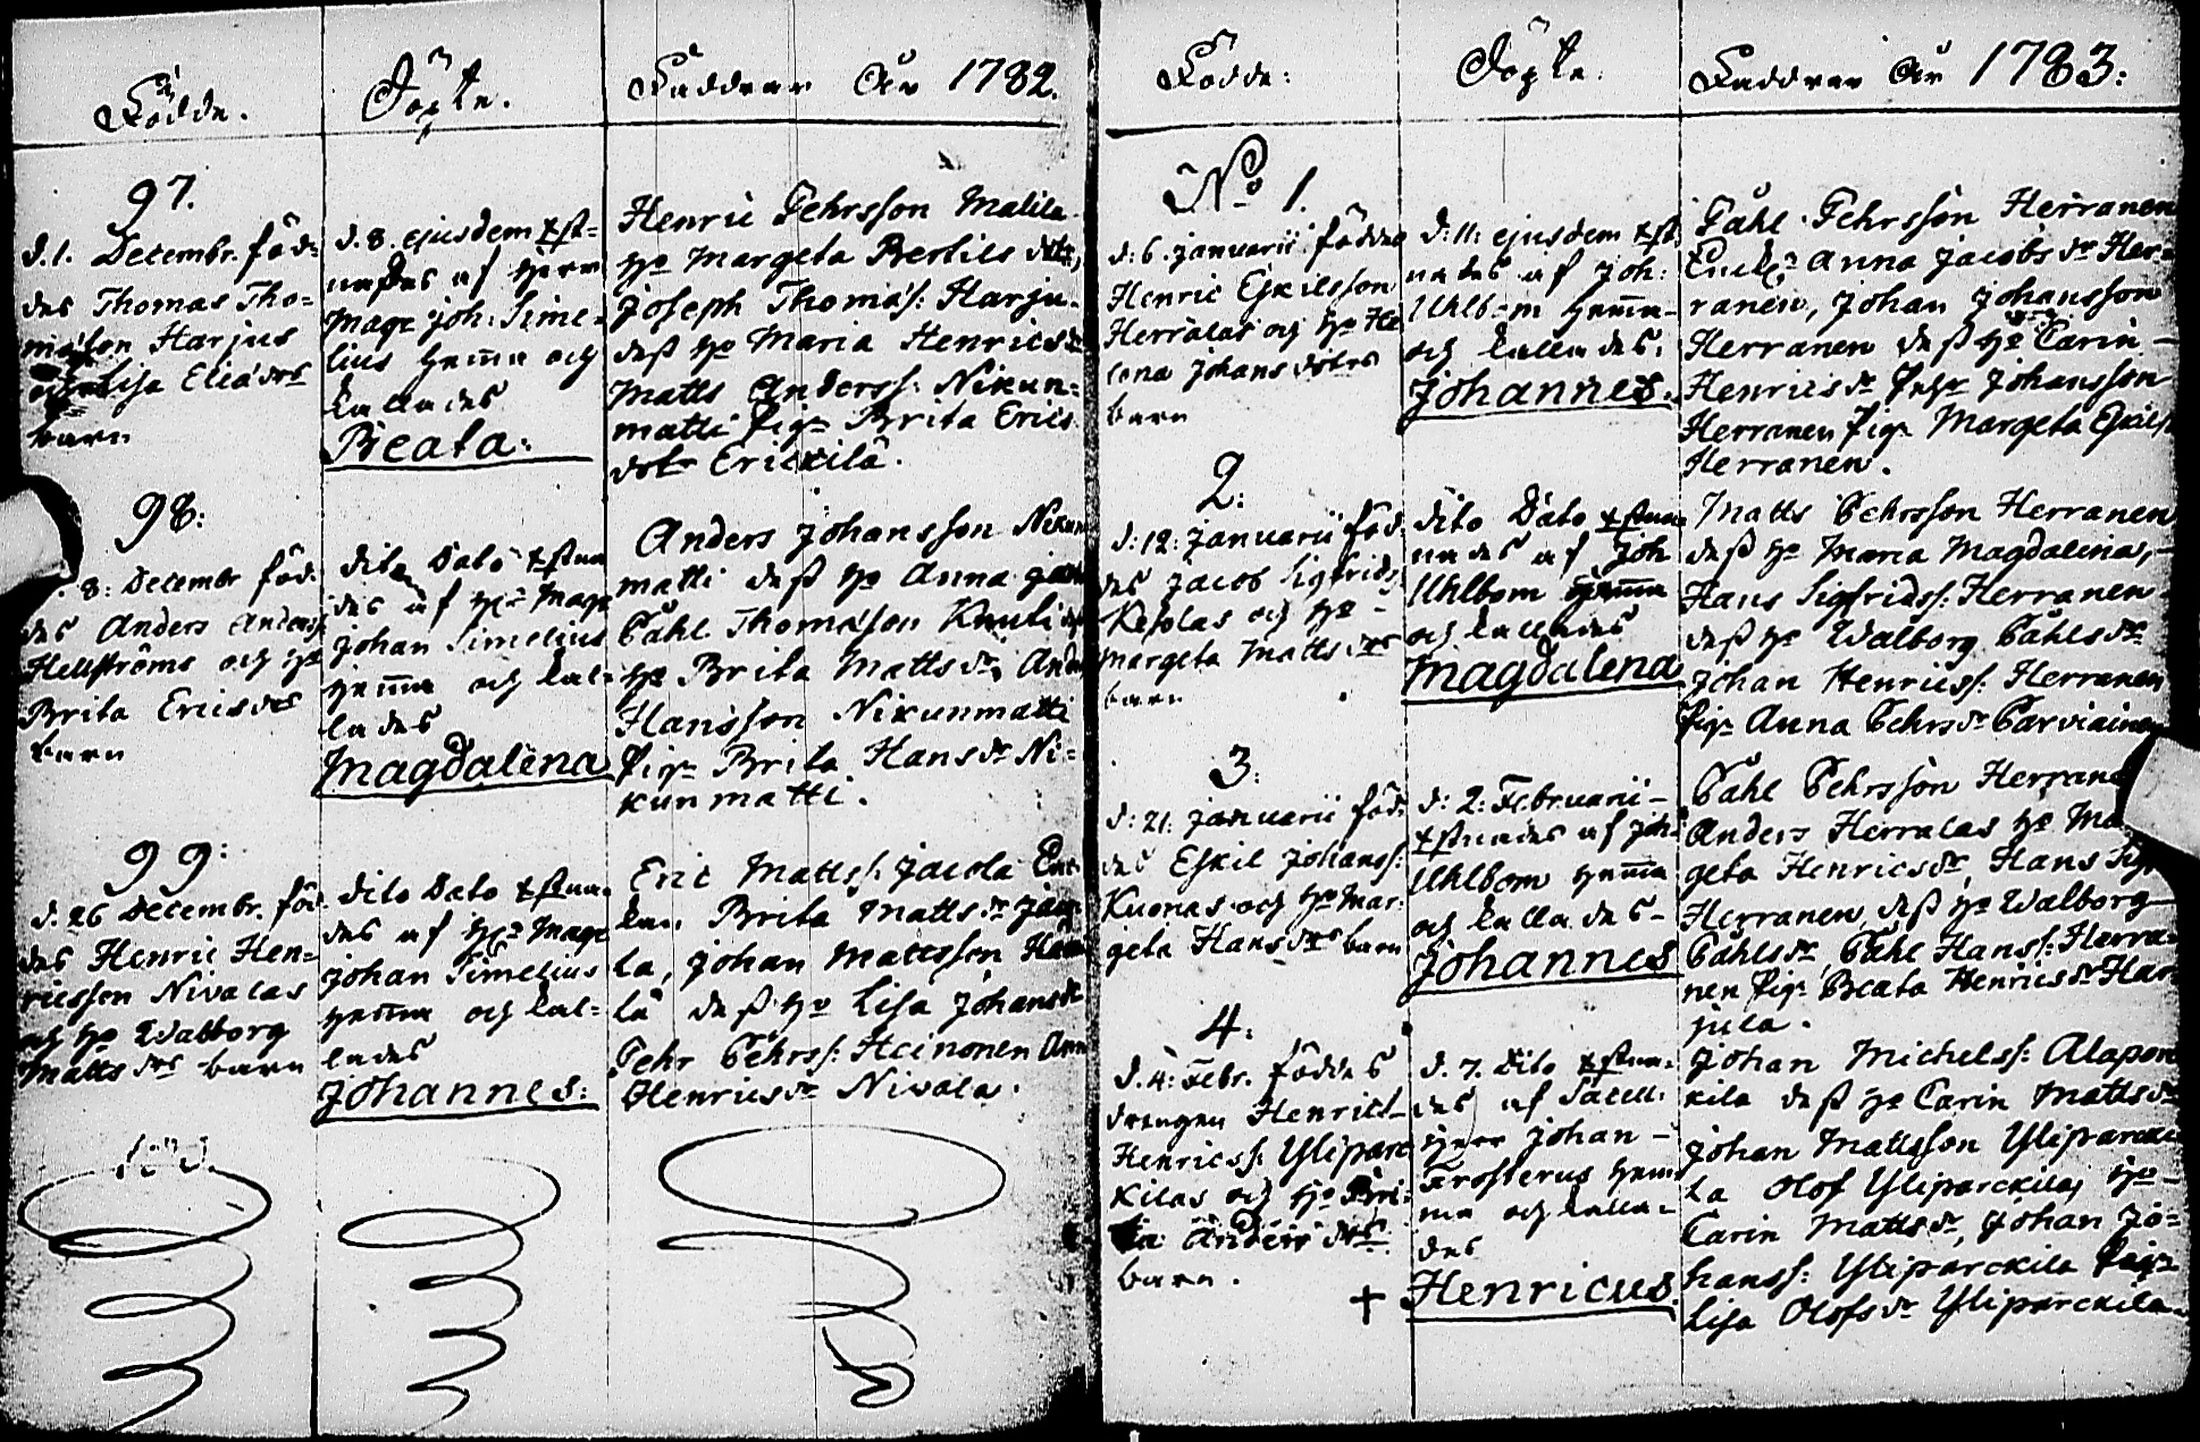 Födde.
Döpte.
Faddrar År 1782.
97.
d. 1. Decembr. föd=
des Thomas Tho=
mæson Harjus
Lisa Eliædrs
barn
d. 8. ejusdem xst=
nades af Herr
Mag: Joh: Sime=
lius hema och
kallades
Beata:
Henric Pehrsson Malila
ho Margeta Bertils dotr,
Joseph Thomæs: Harju-
deß ho Maria Henricsdr
Matts Anderss: Nikun=
matti pig: Brita Erics
dotr Erickilä.
98:
8: Decembr föd:
des Anders Anderss:
Hellströms och ho
Brita Ericsdrs
barn
dito Dato xstna
des af Hr Mag:
Johan Simelius
hema och kal=
lades
Magdalena
Anders Johansson Nikun
matti deß ho Anna
Påhl Thomæson Knuti
ho Brita Mattsdr,
Hansson Nikunmatti
pig: Brita Hansdr Ni=
kunmatti.
99:
d. 26 Decembr. föd
des Henric Hen=
ricsson Nivalas
och ho Walborg
Mattsdrs barn
dito Dato xstna-
des af Hr Mag:
Johan Simelius
hema och kal=
lades
Johannes:
Eric Mattss: Jacola
Brita Mattsdr
la, Johan Mattsson
lä deß ho Lisa Johansdr
Pehr Pehrss: Heinonen
Henricsdr Nivala.
100.
Födde:
Döpte.
Faddrar År 1783:
No 1.
d: 6. Januarii föddes
Henric Eskilsson
Herralas och ho He
lena Johans dotrs
barn
d: 11: ejusdem xst
nades af Joh:
Uhlbom hema-
och kallades.
Johannes.
Påhl Pehrsson Herranen
Enck: Anna Jacobsdr Her=
ranen, Johan Johansson
Herranen deß ho Carin -
Henricsdr Pehr Johansson
Herranen pig: Margeta Eskils
Herranen.
2:
d: 12: Januarii föd
des Jacob Sigfrids
Kesolas och ho -
Margeta Mattsdrs
barn
dito Dato xstna
nades af Joh
Uhlbom hema
och kallades
Magdalena
Matts Pehrsson Herranen
deß ho Maria Magdalena, -
Hans Sigfridss: Herranen
deß ho Walborg Påhlsdr
Johan Henricss: Herranen
pig: Anna Pehrsdr Parviainen
3:
d: 21: Januarii föd
des Eskil Johanss:
Kuonas och ho Mar:
geta Hansdrs barn
d: 2: Februarii -
xstnades af Joh:
Uhlbom hema
och kallades -
Johannes
Påhl Pehrsson Herrane
Anders Herralas ho Ma
geta Henricsdr, Hans Sig
Herranen, deß ho Walborg
Påhlsdr, Påhl Hanss: Herra=
nen pig: Beata Henricsdr Har
jula.
4:
d. 4: Febr. föddes
drengen Henrics
Henricss: Ylipare
kilas och ho Bri:
ta Anders drs
barn.
d. 7. dito xstna-
des af Sacell:
Herr Johan -
Frosterus hem
ma och kalla=
des
+ Henricus.
Johan Michelss: Alapare
kila deß ho Carin Mattsdr
Johan Mattsson Ylipareki
la Olof Ylipareckila, ho -
Carin Mattsdr, Johan Jo=
hanss: Ylipareckila pig:
Lisa Olofsdr Ylipareckila.